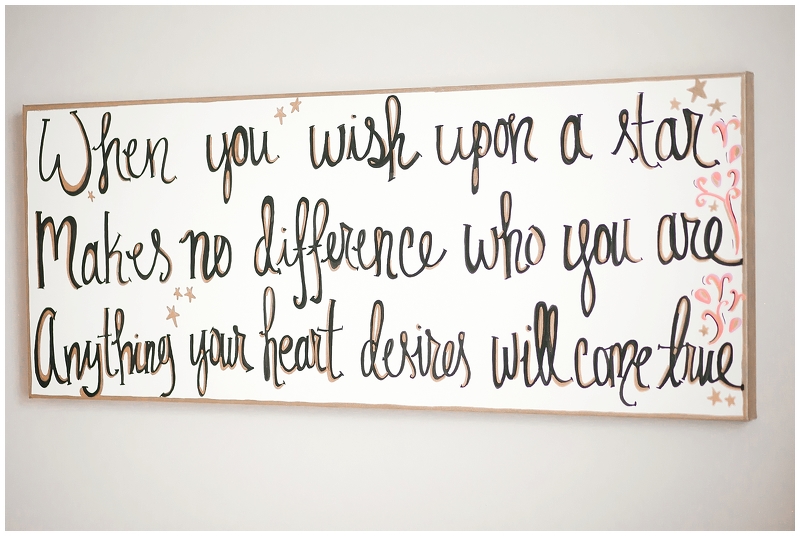 When you wish upon a star
Makes no difference who you are
Anything your heart desires will come true